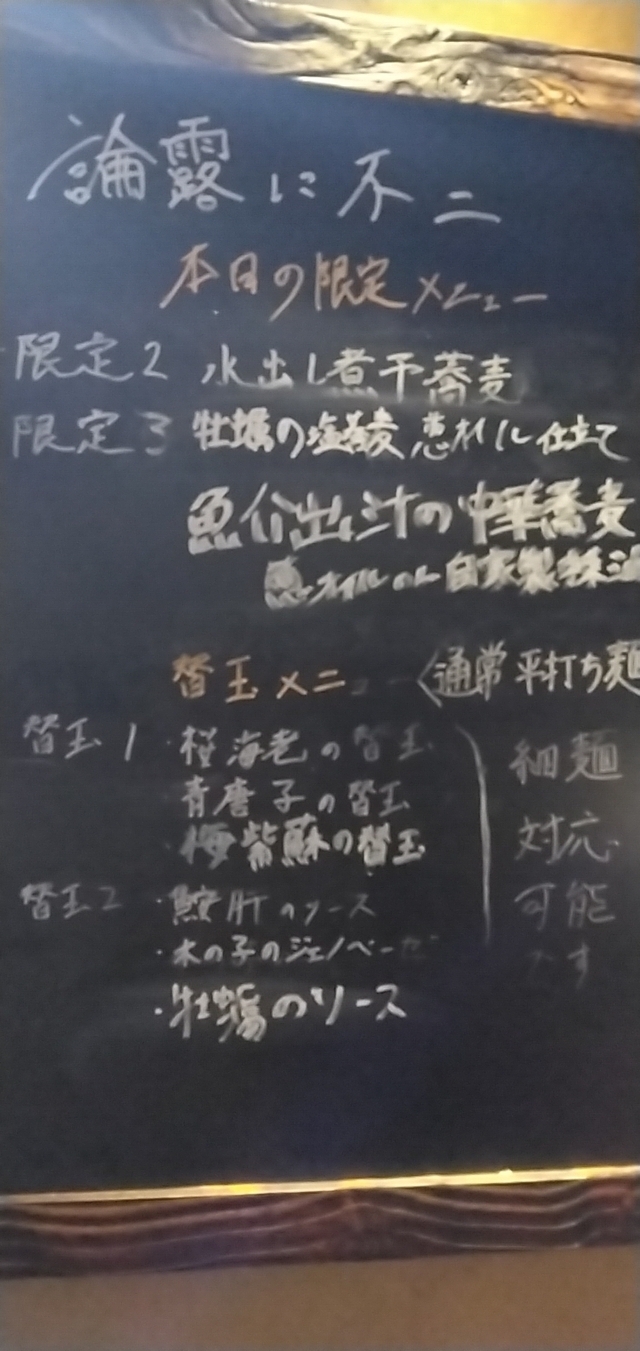 論露に不二
本日の限定メニュー
限定2 水出し煮干蕎麦
限定3 牡蠣の塩蕎麦 葱オイル仕立て
魚介出汁の中華蕎麦
オイル 自家製
替玉メニュー〈通常平打ち麺
替玉1 ・桜海老の替玉
青唐子の替玉
・梅紫蘇の替玉
細麺
対応
可能
です
替玉2 ・鮟肝のソース
・木の子のジェノベーゼ
・牡蠣のソース